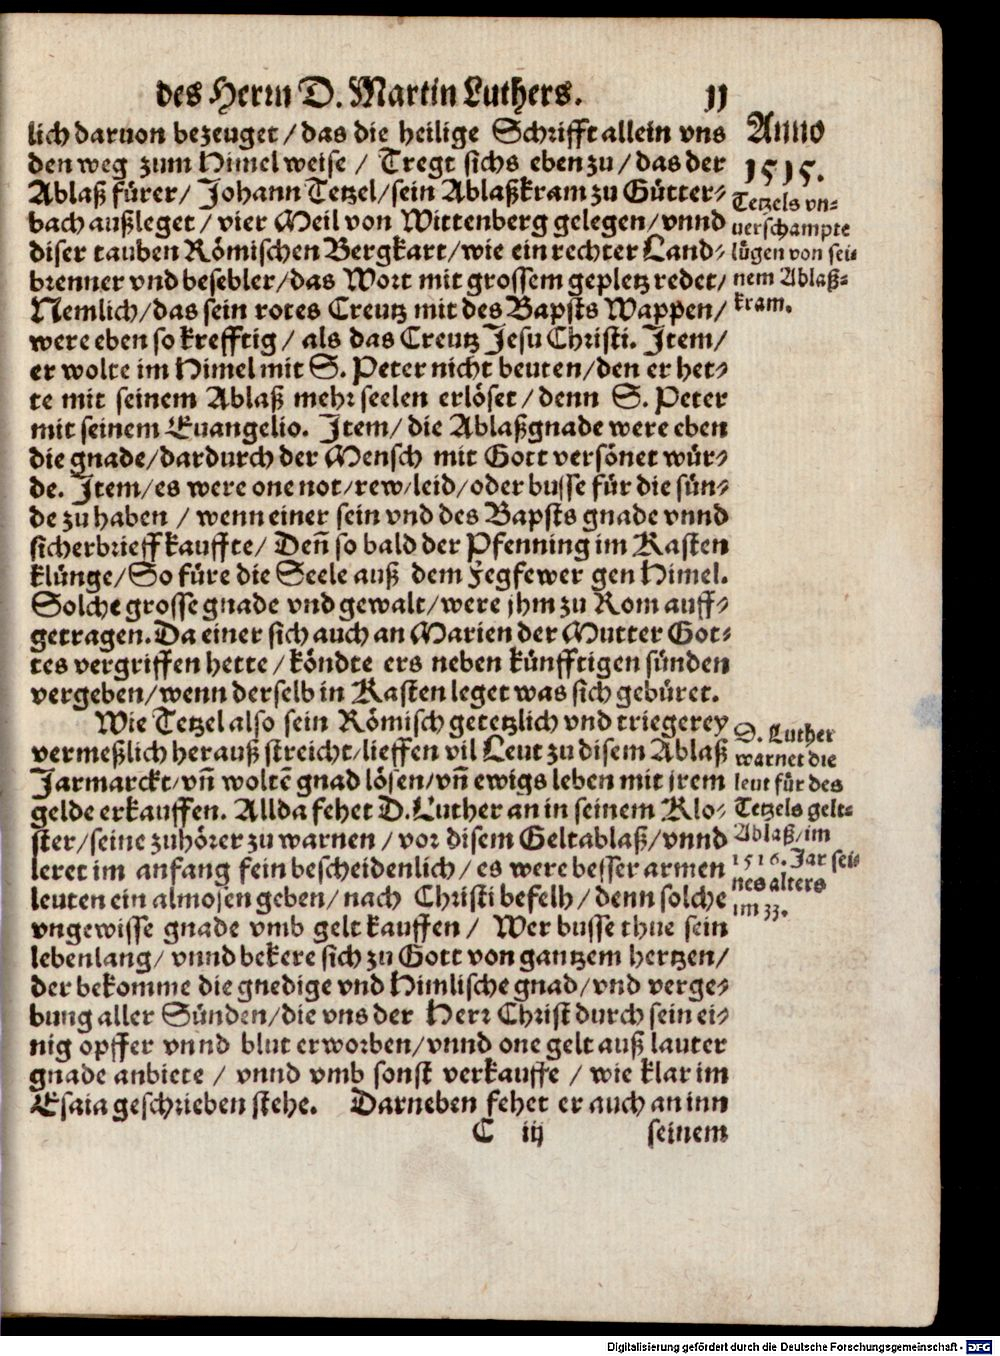 des Herrn D. Martin Luthers. 11
lich daruon bezeuget / das die heilige Schrifft allein vns
den weg zum Himel weise / Tregt sichs eben zu / das der
Ablaß fürer / Johann Tetzel / sein Ablaßkram zu Gütter-
bach außleget / vier Meil von Wittenberg gelegen / vnnd
diser tauben Römischen Bergkart / wie ein rechter Land-
brenner vnd besebler / das Wort mit grossem gepletz redet /
Nemlich / das sein rotes Creutz mit des Bapsts Wappen /
were eben so krefftig / als das Creutz Jesu Christi. Item /
er wolte im Himel mit S. Peter nicht beuten / den er het-
te mit seinem Ablaß mehr seelen erlöset / denn S. Peter
mit seinem Euangelio. Item / die Ablaßgnade were eben
die gnade / dardurch der Mensch mit Gott versönet wür-
de. Item / es were one not / rew / leid / oder busse für die sün-
de zu haben / wenn einer sein vnd des Bapsts gnade vnnd
sicherbrieff kauffte / Deñ so bald der Pfenning im Kasten
klünge / So füre die Seele auß dem Fegfewer gen Himel.
Solche grosse gnade vnd gewalt / were jhm zu Rom auff-
getragen. Da einer sich auch an Marien der Mutter Got-
tes vergriffen hette / köndte ers neben künfftigen sünden
vergeben / wenn derselb in Kasten leget was sich gebüret.
Wie Tetzel also sein Römisch getetzlich vnd triegerey
vermeßlich herauß streicht / lieffen vil Leut zu disem Ablaß
Jarmarckt / vñ woltē gnad lösen / vñ ewigs leben mit jrem
gelde erkauffen. Allda fehet D. Luther an in seinem Klo-
ster / seine zuhörer zu warnen / vor disem Geltablaß / vnnd
leret im anfang fein bescheidenlich / es were besser armen
leuten ein almosen geben / nach Christi befelh / denn solche
vngewisse gnade vmb gelt kauffen / Wer busse thue sein
lebenlang / vnnd bekere sich zu Gott von gantzem hertzen /
der bekomme die gnedige vnd Himlische gnad / vnd verge-
bung aller Sünden / die vns der Herr Christ durch sein ei-
nig opffer vnnd blut erworben / vnnd one gelt auß lauter
gnade anbiete / vnnd vmb sonst verkauffe / wie klar im
Esaia geschrieben stehe. Darneben fehet er auch an inn
C iij seinem
Anno
1515.
Tetzels vn-
uerschampte
lügen von sei-
nem Ablaß-
kram.
D. Luther
warnet die
leut für des
Tetzels gelt-
Ablaß / im
1516. Jar sei-
nes alters
im 33.
Digitalisierung gefördert durch die Deutsche Forschungsgemeinschaft - DFG